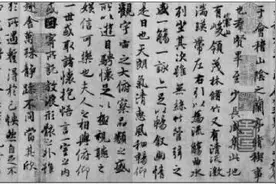 于會稽山陰之蘭亭脩稧事
也羣賢畢至少長咸集此地
有崇山峻領茂林脩竹又有清流激
湍暎帶左右引以為流觴曲水
列坐其次雖無絲竹管弦之
盛一觴一詠亦足以暢敘幽情
是日也天朗氣清惠風和暢仰
觀宇宙之大俯察品類之盛
所以遊目騁懷足以極視聽之
娛信可樂也夫人之相與俯仰
一世或取諸懷抱悟言一室之內
或因寄所託放浪形骸之外雖
趣舍萬殊靜躁不同當其欣
於所遇蹔得於己快然自足不